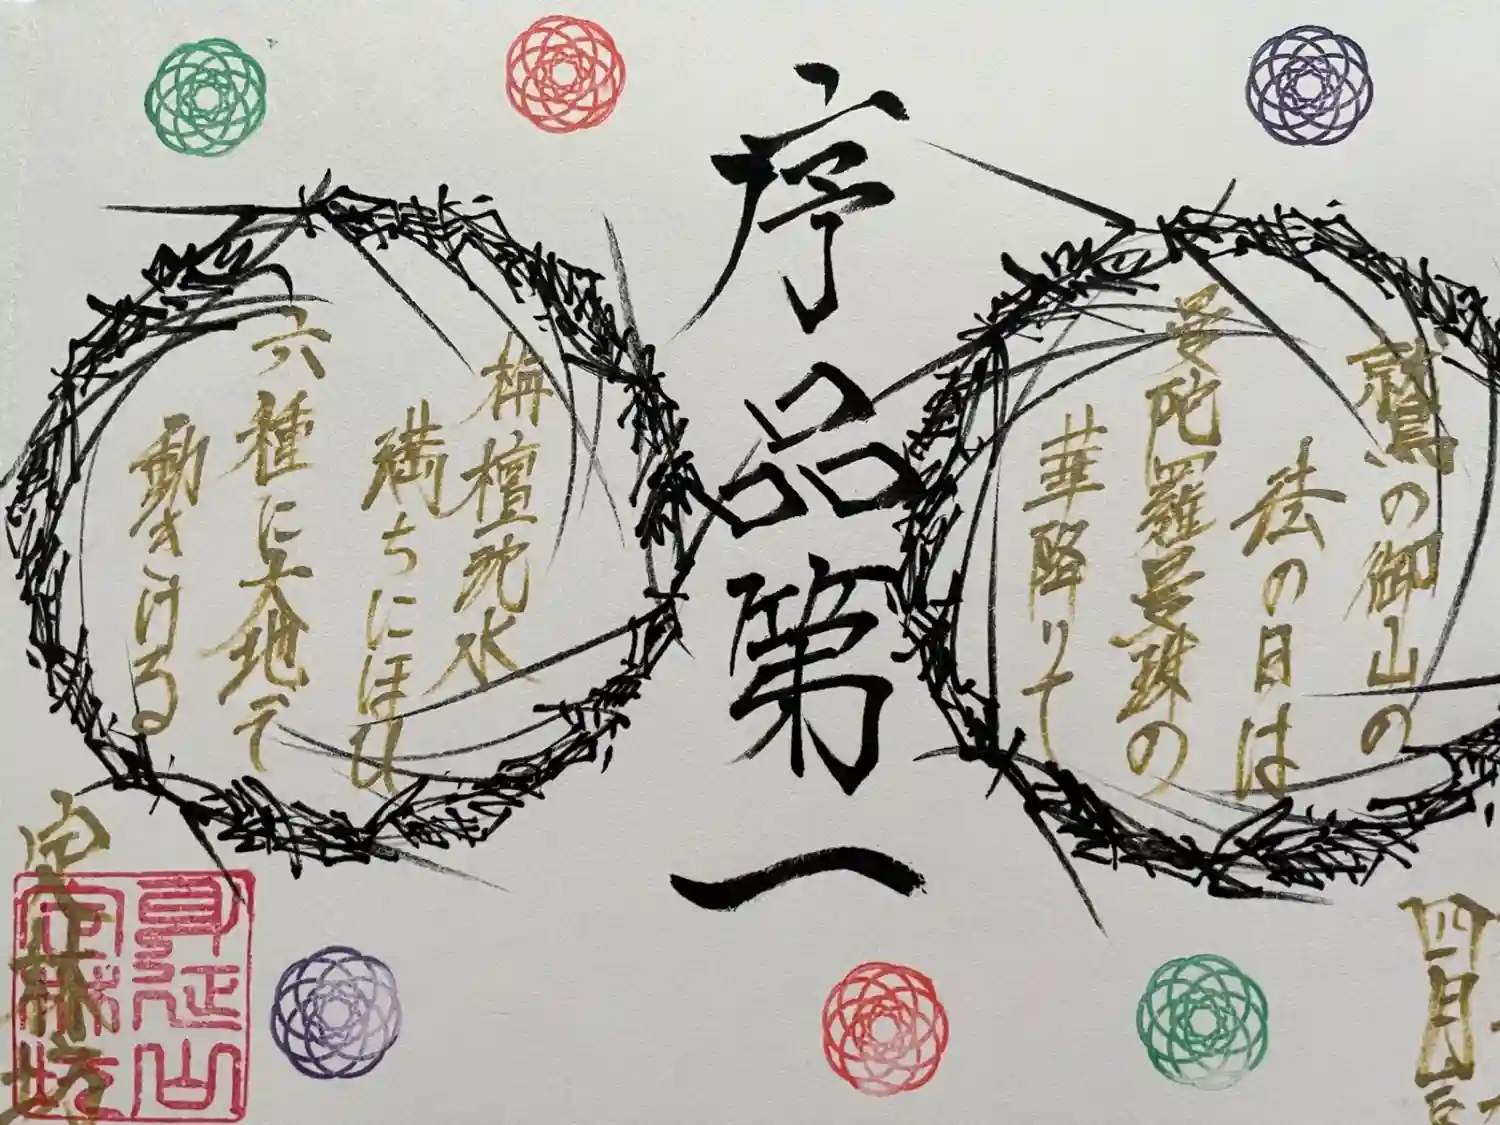 四月
鷲の御山の
法の日は
曼陀羅曼珠の
華降りて
序品第一
栴檀沈水
満ちにほひ
六種に大地ぞ
動きける
定林坊
身延山
定林坊